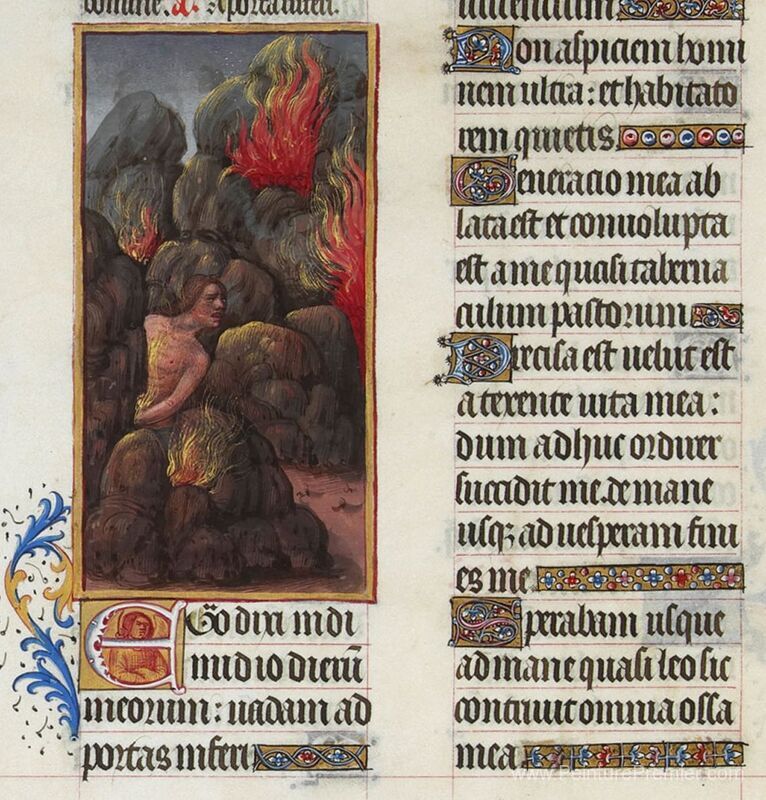 Ego dixi in di
midio dierū
meorum: uadam ad
portas inferi
Non aspiciem homi
nem ultra: et habitato
rem quietis.
Generacio mea ab
lata est et conuoluta
est a me quasi taberna
culum pastorum
Precisa est uelut est
a texente uita mea:
dum adhuc ordirer
succidit me. de mane
usqꝫ ad uesperam fini
es me
Sperabam usque
ad mane quasi leo sic
contriuit omnia ossa
mea